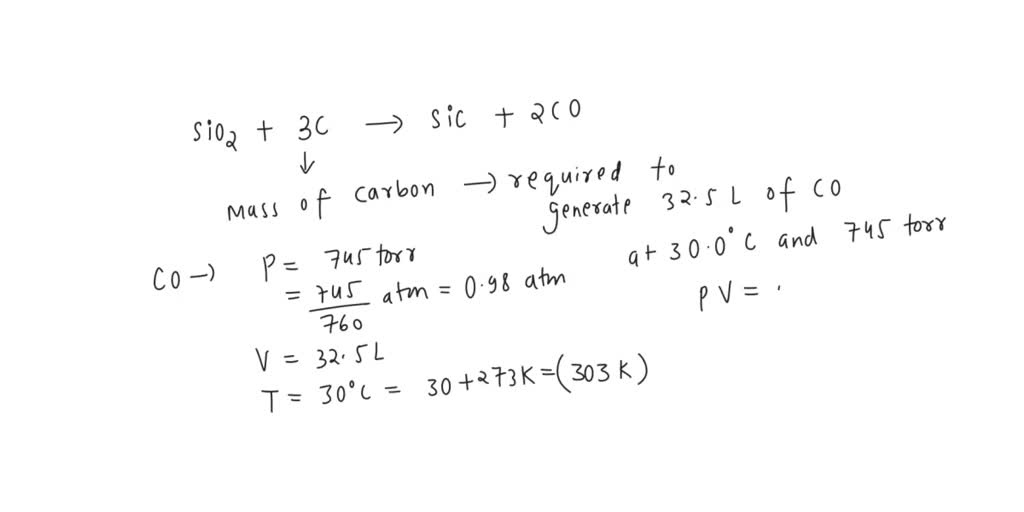 SiO2 + 3C → SiC + 2CO
↓
Mass of carbon → required to
generate 32.5 L of CO
at 30.0°C and 745 torr
CO → P = 745 torr
= 745/760 atm = 0.98 atm
PV =
V = 32.5L
T = 30°C = 30+273K=(303K)